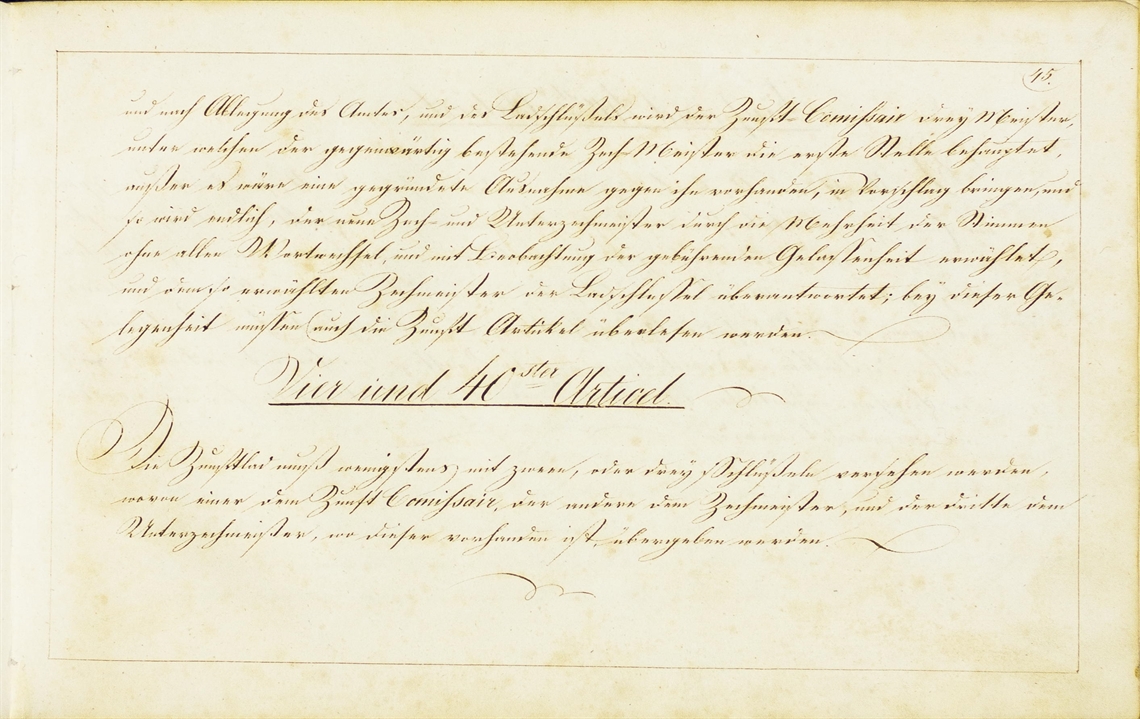 45.
und nach Ablegung des Amtes, und des Ladschlüßels wird der Zunft-Comissair drey Meister,
unter welchen der gegenwärtig bestehende Zech-Meister die erste Stelle behauptet,
außer es wäre eine gegründete Ausnahme gegen ihn vorhanden, in Vorschlag bringen, und
so wird endlich, der neue Zech- und Unterzechmeister durch die Mehrheit der Stimmen
ohne allen Wortwechsel, und mit Beobachtung der gebührenden Gelassenheit erwählet,
und dem so erwählten Zechmeister der Ladschlüssel überantwortet; bey dieser Ge-
legenheit müssen auch die Zunft Artikel überlesen werden.
Vier und 40ster Articel.
Die Zunftlad muß wenigstens mit zween, oder drey Schlüßeln versehen werden,
wovon einer dem Zunft Comissair, der andere dem Zechmeister, und der dritte dem
Unterzechmeister, wo dieser vorhanden ist, übergeben werden.